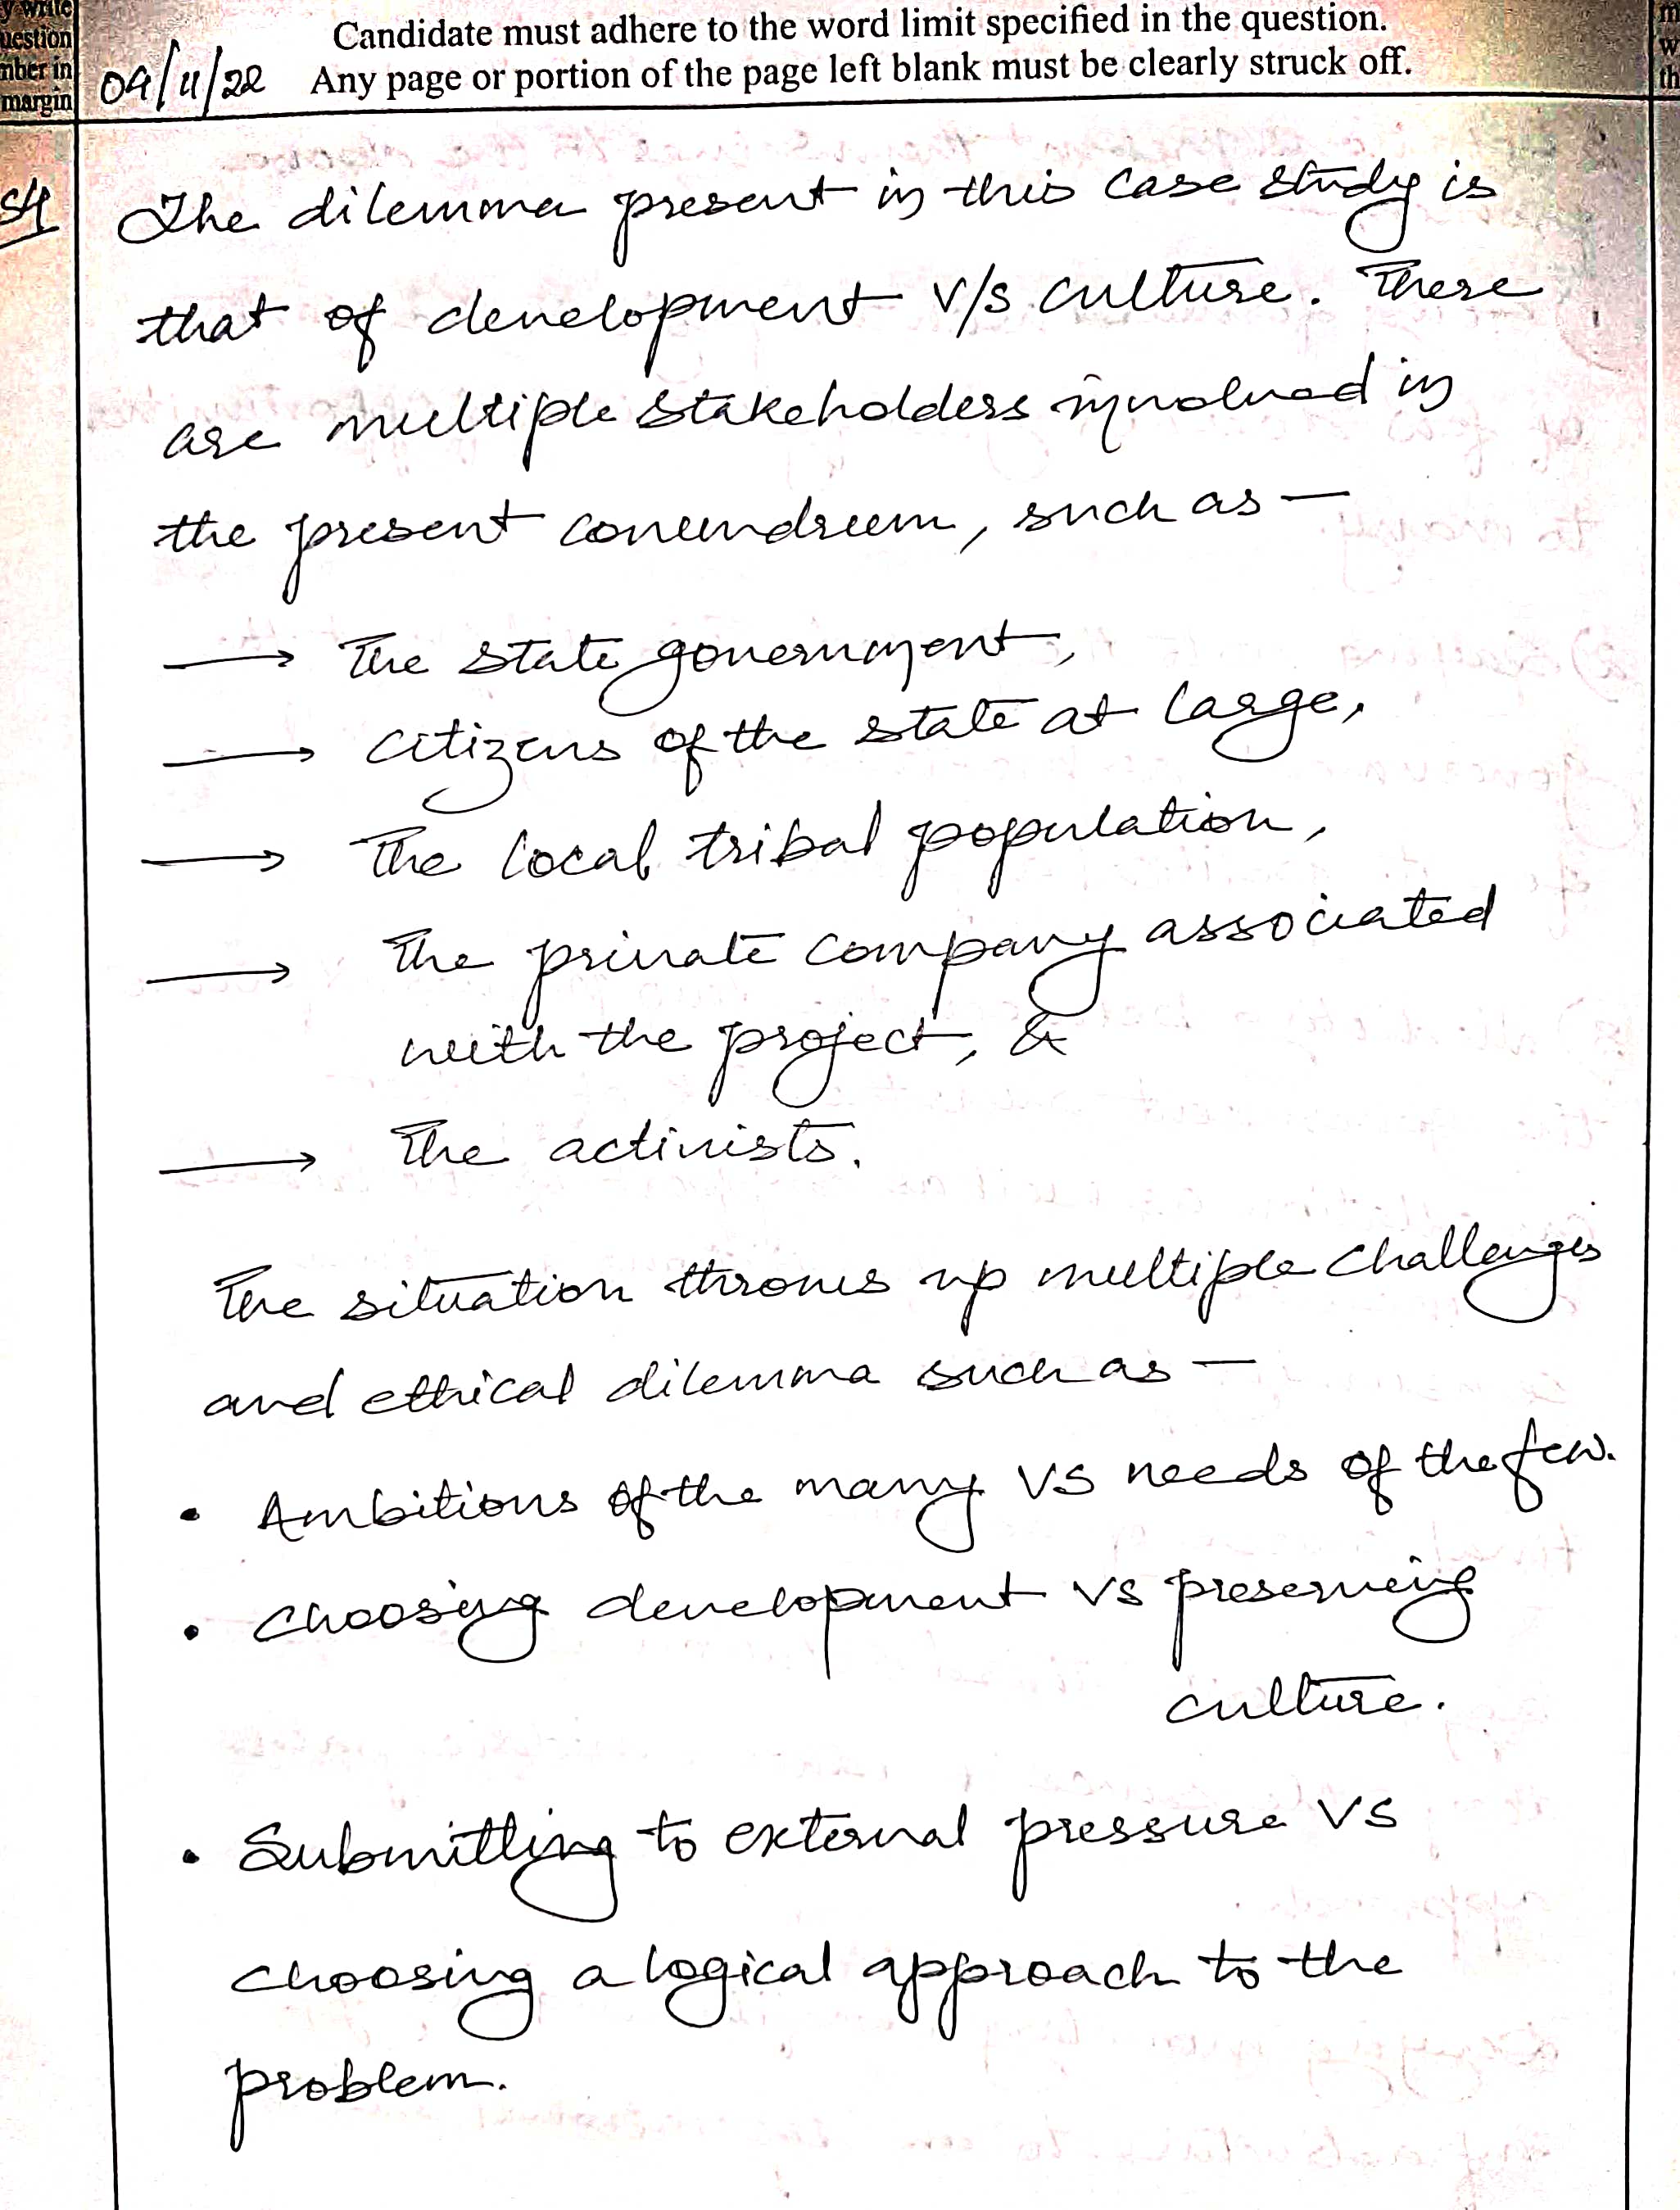 y write
uestion
mber in
margin
Candidate must adhere to the word limit specified in the question.
04/11/22 Any page or portion of the page left blank must be clearly struck off.
m
w
th
The dilemma present in this case study is
that of development v/s culture. There
are multiple stakeholders involved in
the present conundrum, such as —
→ The state government,
→ citizens of the state at large,
→ The local tribal population,
→ The private company associated
with the project, &
→ The activists.
The situation throws up multiple challenges
and ethical dilemma such as —
• Ambitions of the many vs needs of the few.
• choosing development vs preserving
culture.
• Submitting to external pressure vs
choosing a logical approach to the
problem.